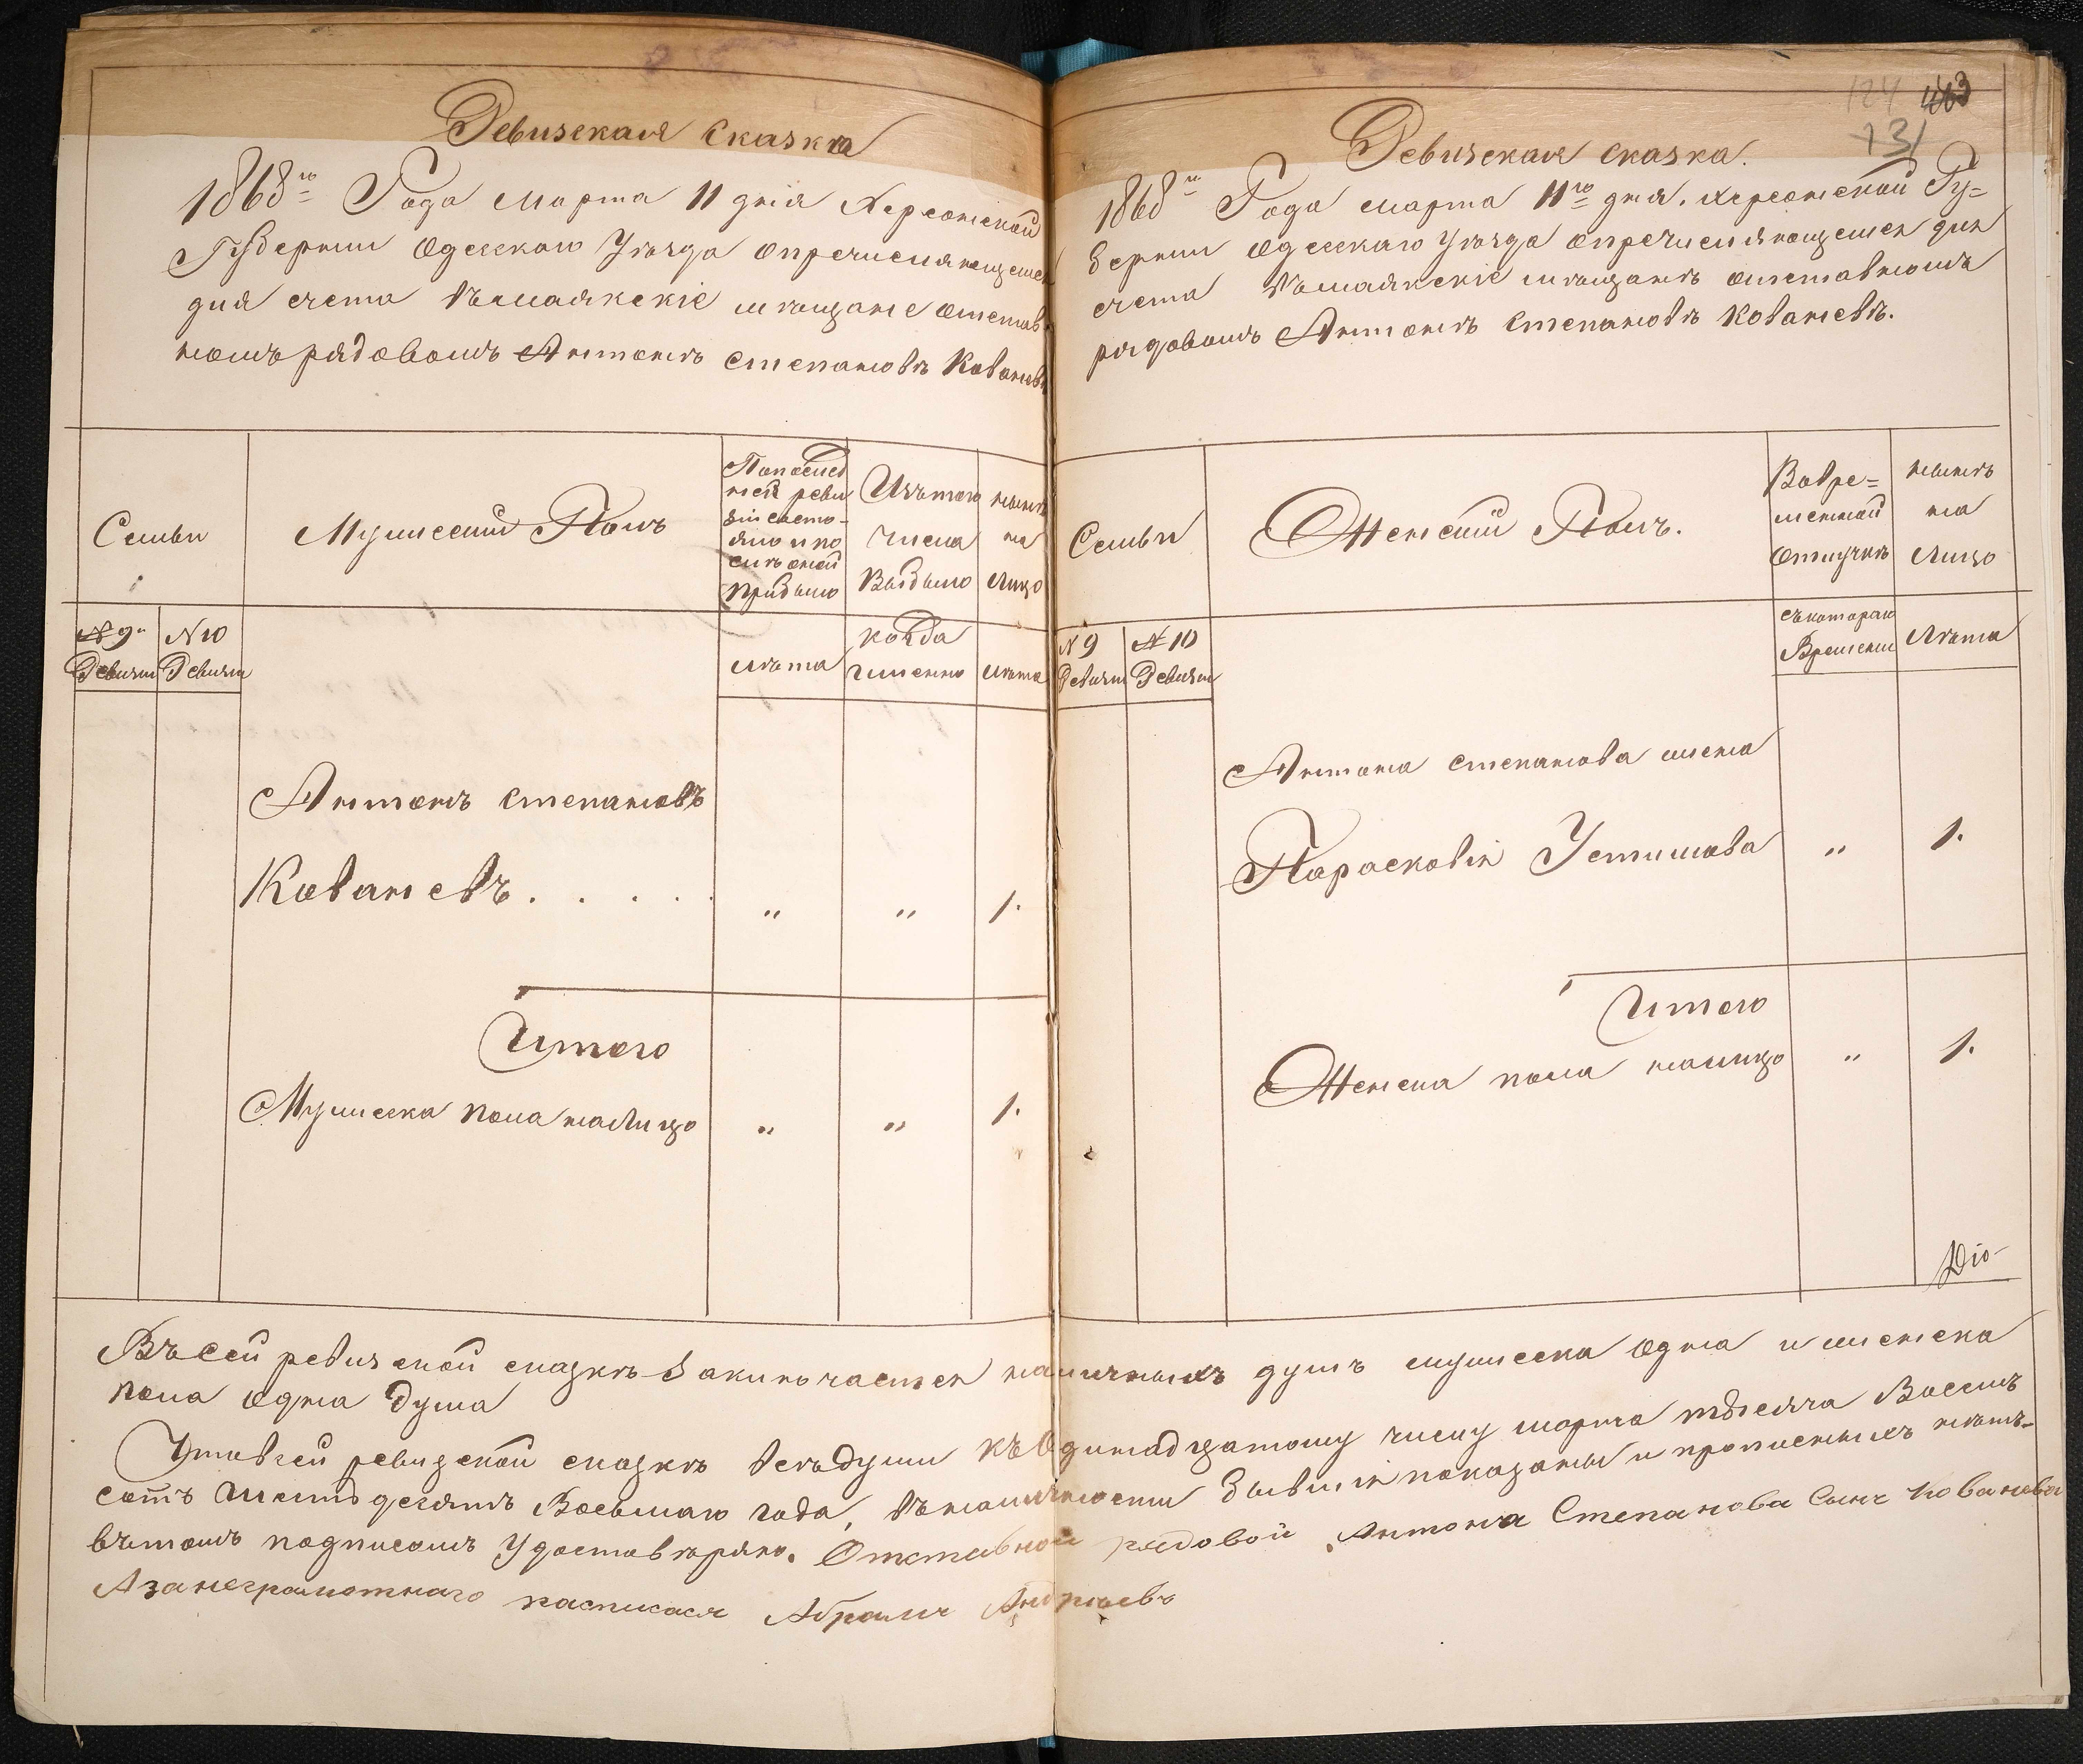 Ревизская Сказка
1868го Года Марта 11 дня Херсонской
Губернии Одесского Уѣзда о причисляющемся
для счета въ маякскіе мѣщане отстав
номъ рядовомъ Антонѣ Степановѣ Кованевѣ
Семьи
Мужеский Полъ
По послед
ней реви
зіи состо-
яло и по
слѣ оной
прибыло
Изъ того
числа
Выбыло
нынѣ
на
лицо
№ 9й
Ревизіи
№ 10
Ревизіи
лѣта
когда
именно
лѣта
Антонъ Степановъ
Кованевъ . . . . . „ „ 1.
Итого
Мужеска пола налицо „ „ 1.
124 463
131
Ревизская сказка.
1868го Года марта 11го дня. Херсонской Гу=
берніи Одесскаго Уѣзда о причисляющемся для
счета въ маякскіе мѣщанѣ отставномъ
рядовомъ Антонѣ Степановѣ Кованевѣ.
Семьи
Женский Полъ.
Во вре=
менной
отлучкѣ
нынѣ
на
лицо
№ 9
Ревизіи
№ 10
Ревизіи
съ котораго
Времени
Лѣта
Антона Степанова жена
Парасковія Устимова „ 1.
Итого
Женска пола налицо „ 1.
Въ сей ревизской сказкѣ заключается наличныхъ душъ мужеска одна и женска
пола одна душа
Что въ сей ревизской сказкѣ всѣ души къ одинадцатому числу марта тысяча Восемь
сотъ шестьдесятъ Восьмаго года, въ наличности бывшія показаны и прописныхъ нѣтъ-
въ томъ подписомъ Удоставѣряю. Отставной рядовой Антона Степанова Сынъ Кованева
А за неграмотнаго расписася Абрамъ Андреевъ